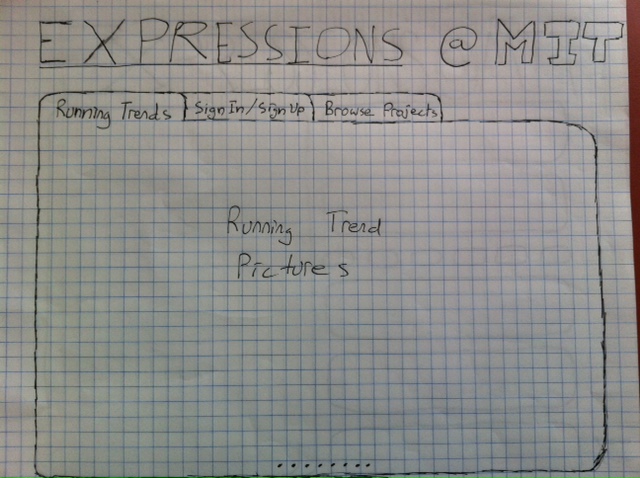 EXPRESSIONS @ MIT
Running Trends Sign In/Sign Up Browse Projects
Running Trend
Pictures